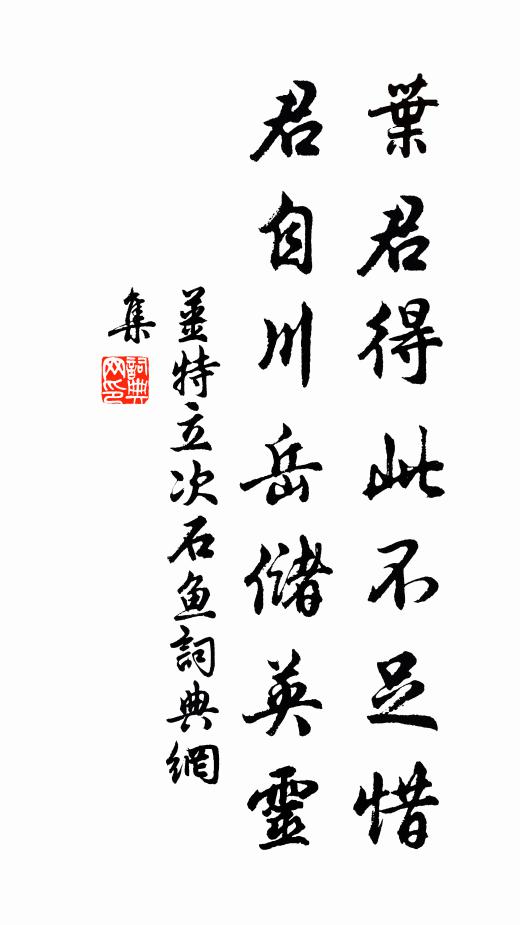 葉君得此不足惜
君自川岳儲英靈
姜特立次石魚詞典網
集
詞典网印